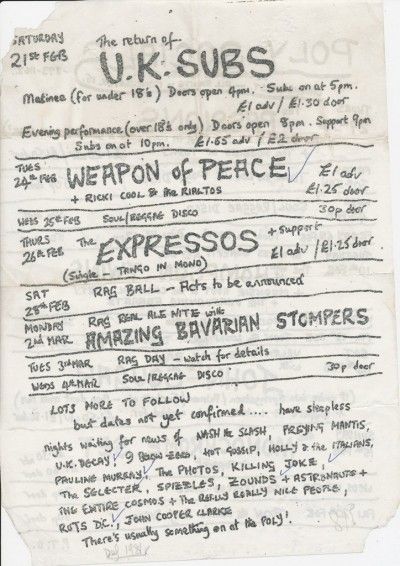 SATURDAY
21ST FEB
The return of
U.K. SUBS
Matinee (for under 18's) Doors open 4pm. Subs on at 5pm.
£1 adv / £1.30 door
Evening performance (over 18's only) Doors open 8pm. Support 9pm
Subs on at 10pm. £1.65 adv / £2 door
TUES
24TH FEB
WEAPON of PEACE
£1 adv
£1.25 door
+ RICKI COOL & the RIALTOS
WEDS 25TH FEB SOUL/REGGAE DISCO 30p door
THURS
26TH FEB
The EXPRESSOS
+ support
£1 adv / £1.25 door
(Single - TANGO IN MONO)
SAT
28TH FEB
RAG BALL - Acts to be announced
MONDAY
2nd MAR
RAG REAL ALE NITE with
AMAZING BAVARIAN STOMPERS
TUES 3rd MAR RAG DAY - watch for details
WEDS 4th MAR SOUL/REGGAE DISCO 30p door
LOTS MORE TO FOLLOW
but dates not yet confirmed.... have sleepless
nights waiting for news of NASH the SLASH, PREYING MANTIS,
U.K. DECAY, 9 BELOW ZERO, HOT GOSSIP, HOLLY & the ITALIANS,
PAULINE MURRAY, THE PHOTOS, KILLING JOKE,
THE SELECTER, SPIZZLES, ZOUNDS + ASTRONAUTS +
THE ENTIRE COSMOS + THE REALLY REALLY NICE PEOPLE,
RUTS D.C., JOHN COOPER CLARKE
There's usually something on at the POLY!